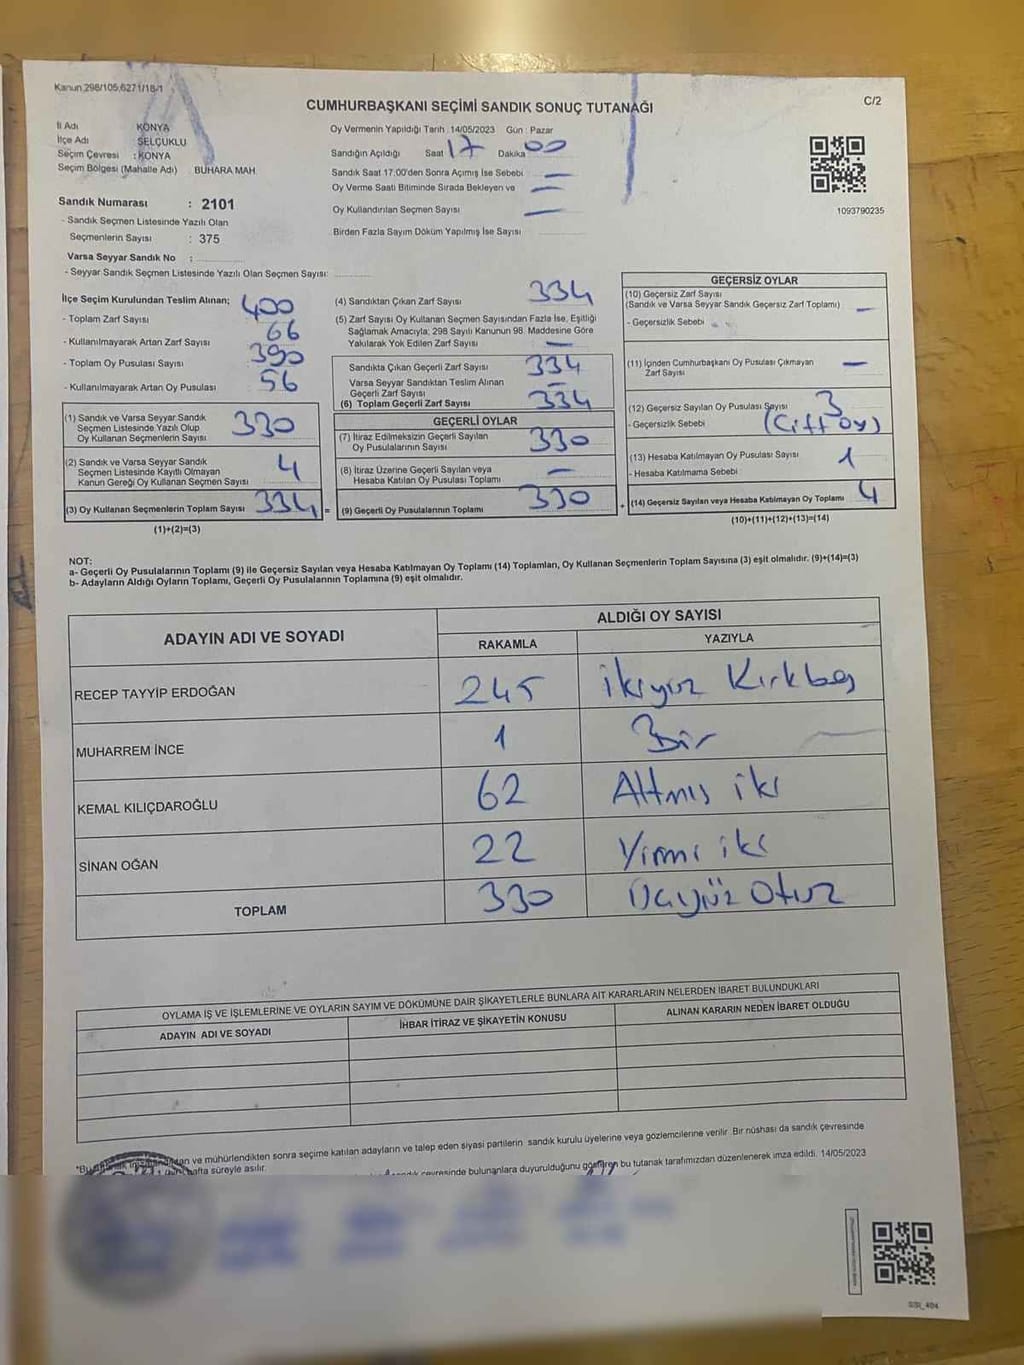 Kanun 298/105,6271/18-1
C/2
CUMHURBAŞKANI SEÇİMİ SANDIK SONUÇ TUTANAĞI
İl Adı KONYA
İlçe Adı SELÇUKLU
Seçim Çevresi : KONYA
Seçim Bölgesi (Mahalle Adı) BUHARA MAH.
Sandık Numarası : 2101
- Sandık Seçmen Listesinde Yazılı Olan
Seçmenlerin Sayısı : 375
Varsa Seyyar Sandık No :
- Seyyar Sandık Seçmen Listesinde Yazılı Olan Seçmen Sayısı:
Oy Vermenin Yapıldığı Tarih : 14/05/2023 Gün : Pazar
Sandığın Açıldığı Saat 17 Dakika 00
Sandık Saat 17:00'den Sonra Açımış İse Sebebi —
Oy Verme Saati Bitiminde Sırada Bekleyen ve —
Oy Kullandırılan Seçmen Sayısı —
Birden Fazla Sayım Döküm Yapılmış İse Sayısı
1093790235
İlçe Seçim Kurulundan Teslim Alınan;
- Toplam Zarf Sayısı 400
- Kullanılmayarak Artan Zarf Sayısı 66
- Toplam Oy Pusulası Sayısı 390
- Kullanılmayarak Artan Oy Pusulası 56
(1) Sandık ve Varsa Seyyar Sandık
Seçmen Listesinde Yazılı Olup
Oy Kullanan Seçmenlerin Sayısı 330
(2) Sandık ve Varsa Seyyar Sandık
Seçmen Listesinde Kayıtlı Olmayan
Kanun Gereği Oy Kullanan Seçmen Sayısı 4
(3) Oy Kullanan Seçmenlerin Toplam Sayısı 334 =
(1)+(2)=(3)
(4) Sandıktan Çıkan Zarf Sayısı 334
(5) Zarf Sayısı Oy Kullanan Seçmen Sayısından Fazla İse, Eşitliği
Sağlamak Amacıyla; 298 Sayılı Kanunun 98. Maddesine Göre
Yakılarak Yok Edilen Zarf Sayısı —
Sandıkta Çıkan Geçerli Zarf Sayısı 334
Varsa Seyyar Sandıktan Teslim Alınan
Geçerli Zarf Sayısı —
(6) Toplam Geçerli Zarf Sayısı 334
GEÇERLİ OYLAR
(7) İtiraz Edilmeksizin Geçerli Sayılan
Oy Pusulalarının Sayısı 330
(8) İtiraz Üzerine Geçerli Sayılan veya
Hesaba Katılan Oy Pusulası Toplamı —
(9) Geçerli Oy Pusulalarının Toplamı 330 +
GEÇERSİZ OYLAR
(10) Geçersiz Zarf Sayısı
(Sandık ve Varsa Seyyar Sandık Geçersiz Zarf Toplamı) —
- Geçersizlik Sebebi
(11) İçinden Cumhurbaşkanı Oy Pusulası Çıkmayan
Zarf Sayısı —
(12) Geçersiz Sayılan Oy Pusulası Sayısı 3
- Geçersizlik Sebebi (Çift Oy)
(13) Hesaba Katılmayan Oy Pusulası Sayısı 1
- Hesaba Katılmama Sebebi
(14) Geçersiz Sayılan veya Hesaba Katılmayan Oy Toplamı 4
(10)+(11)+(12)+(13)=(14)
NOT:
a- Geçerli Oy Pusulalarının Toplamı (9) ile Geçersiz Sayılan veya Hesaba Katılmayan Oy Toplamı (14) Toplamları, Oy Kullanan Seçmenlerin Toplam Sayısına (3) eşit olmalıdır. (9)+(14)=(3)
b- Adayların Aldığı Oyların Toplamı, Geçerli Oy Pusulalarının Toplamına (9) eşit olmalıdır.
ADAYIN ADI VE SOYADI
ALDIĞI OY SAYISI
RAKAMLA YAZIYLA
RECEP TAYYİP ERDOĞAN 245 ikiyüz Kırkbeş
MUHARREM İNCE 1 Bir
KEMAL KILIÇDAROĞLU 62 Altmış iki
SİNAN OĞAN 22 Yirmi iki
TOPLAM 330 Üçyüz Otuz
OYLAMA İŞ VE İŞLEMLERİNE VE OYLARIN SAYIM VE DÖKÜMÜNE DAİR ŞİKAYETLERLE BUNLARA AİT KARARLARIN NELERDEN İBARET BULUNDUKLARI
ADAYIN ADI VE SOYADI İHBAR İTİRAZ VE ŞİKAYETİN KONUSU ALINAN KARARIN NEDEN İBARET OLDUĞU
ve mühürlendikten sonra seçime katılan adayların ve talep eden siyasi partilerin sandık kurulu üyelerine veya gözlemcilerine verilir. Bir nüshası da sandık çevresinde
hafta süreyle asılır.
çevresinde bulunanlara duyurulduğunu gösteren bu tutanak tarafımızdan düzenlenerek imza edildi. 14/05/2023